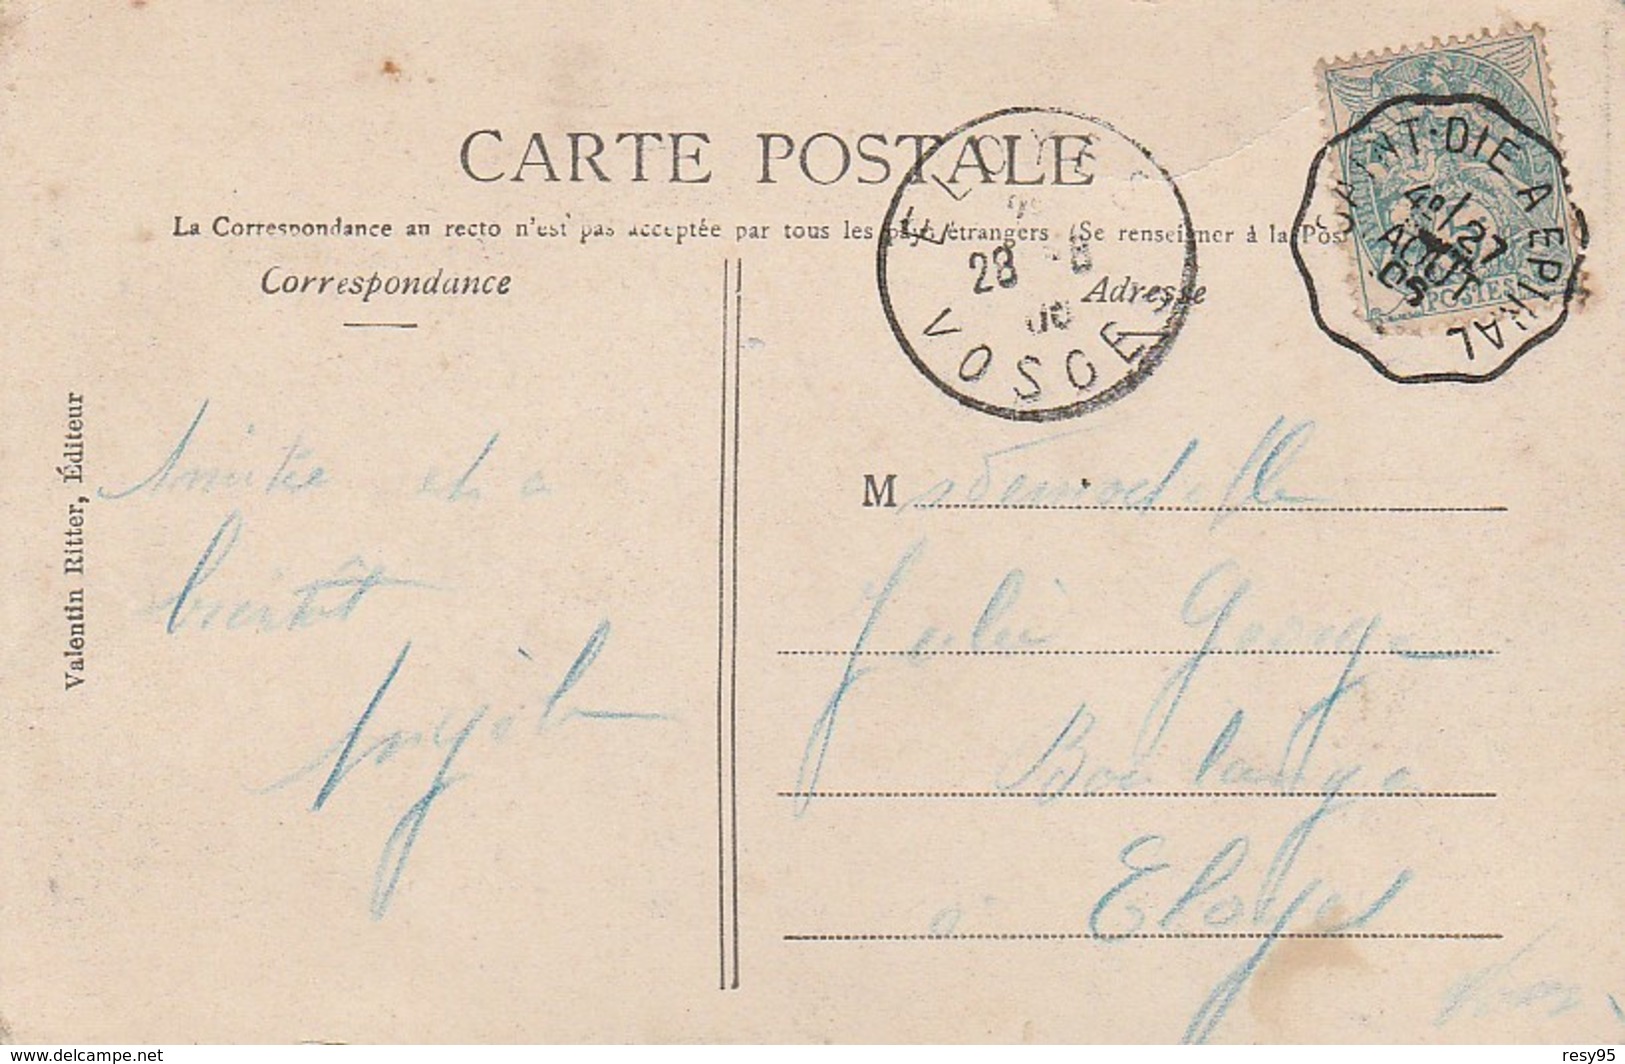 CARTE POSTALE
La Correspondance au recto n'est pas acceptée par tous les pays étrangers (Se renseigner à la Pos
Correspondance
Adresse
ELOYES
28 -8
VOSGES
SAINT-DIE A EPINAL
4º/27
AOUT
05
POSTES
Valentin Ritter, Éditeur
Amitié et a
bientôt
Angèle
M ademoiselle
Julie George
Boulange
à Eloyes
resy95